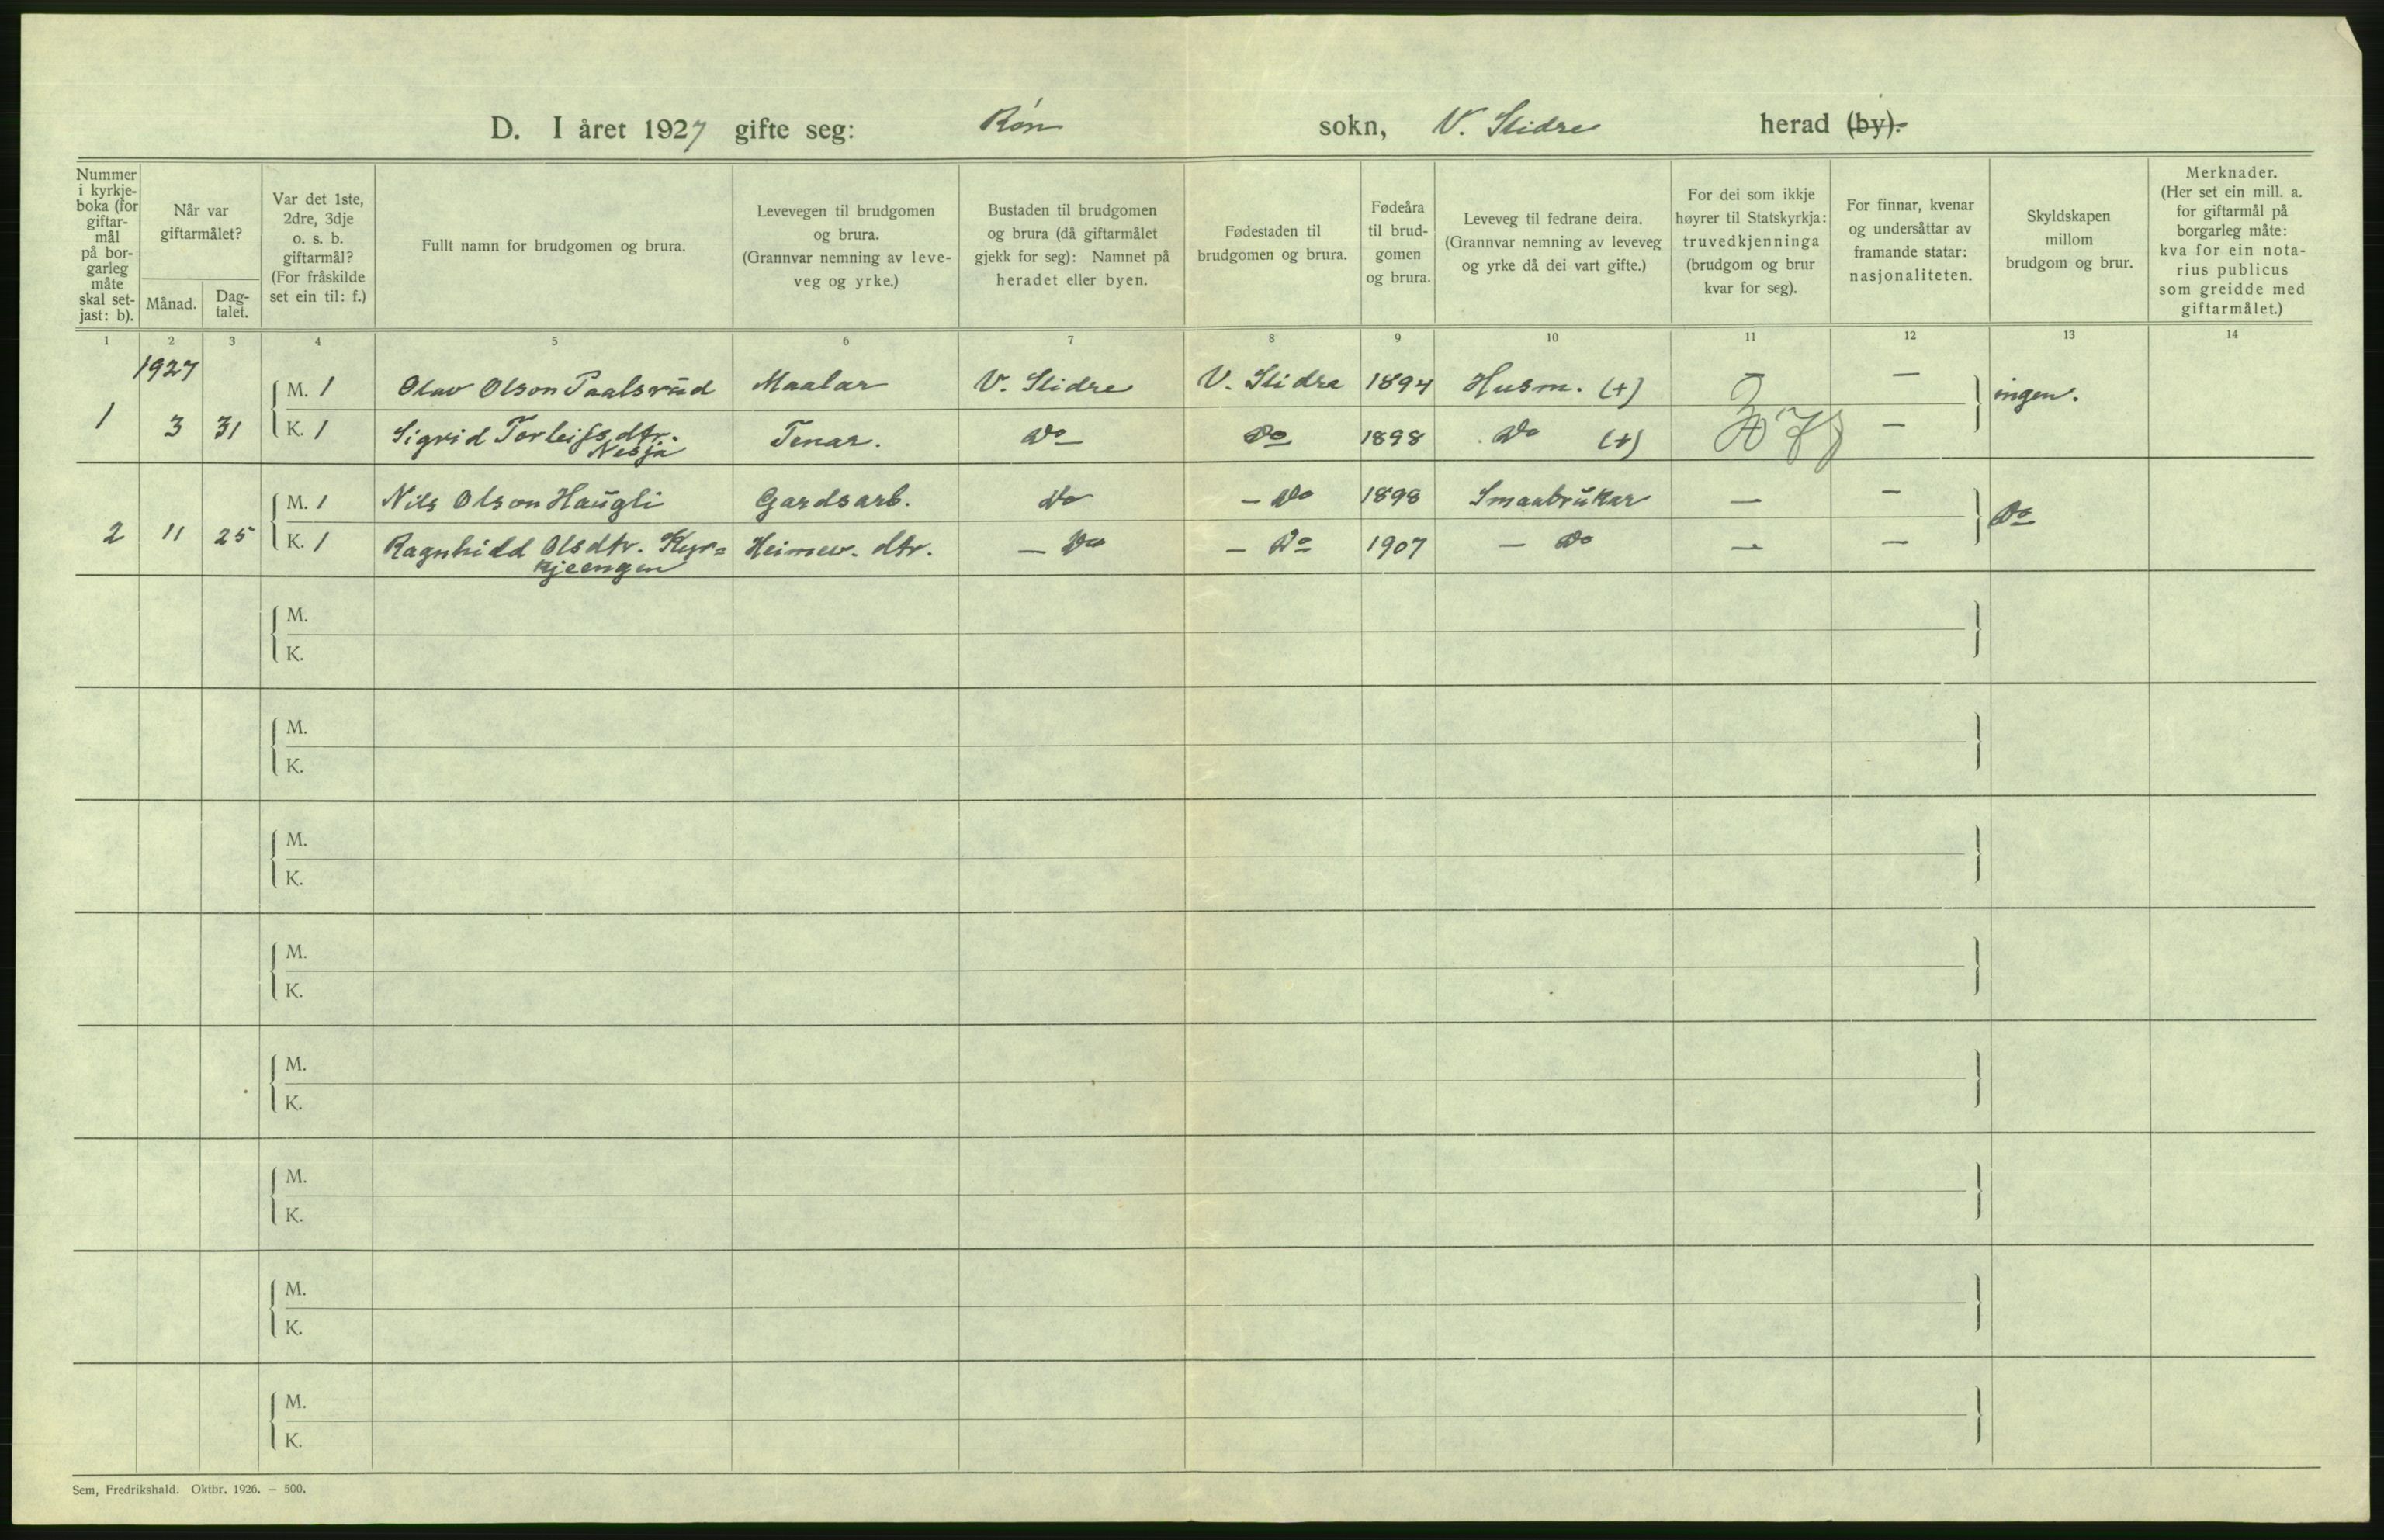 D. I året 1927 gifte seg: Røn sokn, V. Slidre herad (by).
Nummer i kyrkje-boka (for giftar-mål på bor-garleg måte skal set-jast: b).
Når var giftarmålet?
Månad.
Dag-talet.
Var det 1ste, 2dre, 3dje o. s. b. giftarmål? (For fråskilde set ein til: f.)
Fullt namn for brudgomen og brura.
Levevegen til brudgomen og brura. (Grannvar nemning av leve-veg og yrke.)
Bustaden til brudgomen og brura (då giftarmålet gjekk for seg): Namnet på heradet eller byen.
Fødestaden til brudgomen og brura.
Fødeåra til brud-gomen og brura.
Leveveg til fedrane deira. (Grannvar nemning av leveveg og yrke då dei vart gifte.)
For dei som ikkje høyrer til Statskyrkja: truvedkjenninga (brudgom og brur kvar for seg).
For finnar, kvenar og undersåttar av framande statar: nasjonaliteten.
Skyldskapen millom brudgom og brur.
Merknader. (Her set ein mill. a. for giftarmål på borgarleg måte: kva for ein nota-rius publicus som greidde med giftarmålet.)
1 2 3 4 5 6 7 8 9 10 11 12 13 14
1927
M. 1 Olav Olson Paalsrud Maalar V. Slidre V. Slidre 1894 Husm. (+) — — ingen.
1 3 31 K. 1 Sigrid Torleifsdtr. Nesja Tenar. Do Do 1898 Do (+) —
M. 1 Nils Olson Haugli Gardsarb. Do — Do 1898 Smaabrukar — — Do
2 11 25 K. 1 Ragnhild Olsdtr. Kyr= Heimev. dtr. — Do — Do 1907 — Do — —
kjeengen
M.
K.
M.
K.
M.
K.
M.
K.
M.
K.
M.
K.
M.
K.
M.
K.
Sem, Fredrikshald. Oktbr. 1926. — 500.